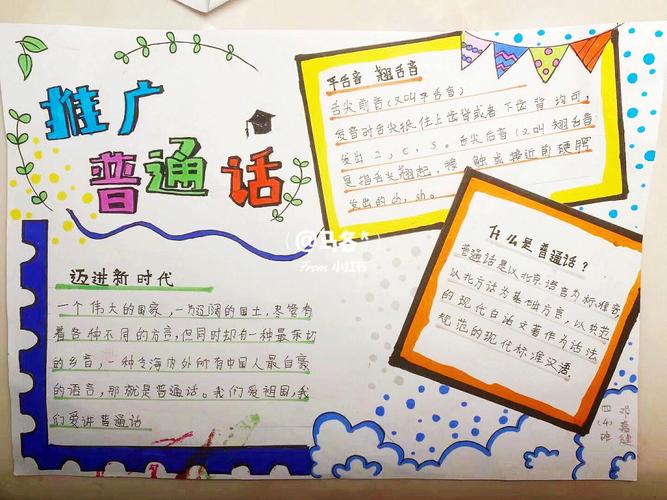 推广
普通话
平舌音 翘舌音
舌尖前音(又叫平舌音)
发音时舌尖抵住上齿背或者下齿背均可,
发出z,c,s。舌尖后音(又叫翘舌音
是指舌尖翘起,接触或接近前硬腭
发出的
sh。
什么是普通话?
普通话是以北京语言为标准音,
以北方话为基础方言,以典范
的现代白话文著作为语法
规范的现代标准汉语。
迈进新时代
一个伟大的国家,一为辽阔的国土,尽管有
着各种不同的方言,但同时却有一种最亲切
的乡音,一种令海内外所有中国人最自豪
的语言,那就是普通话。我们爱祖国,我
们爱讲普通话
From 小红书
四(4)班
邓嘉